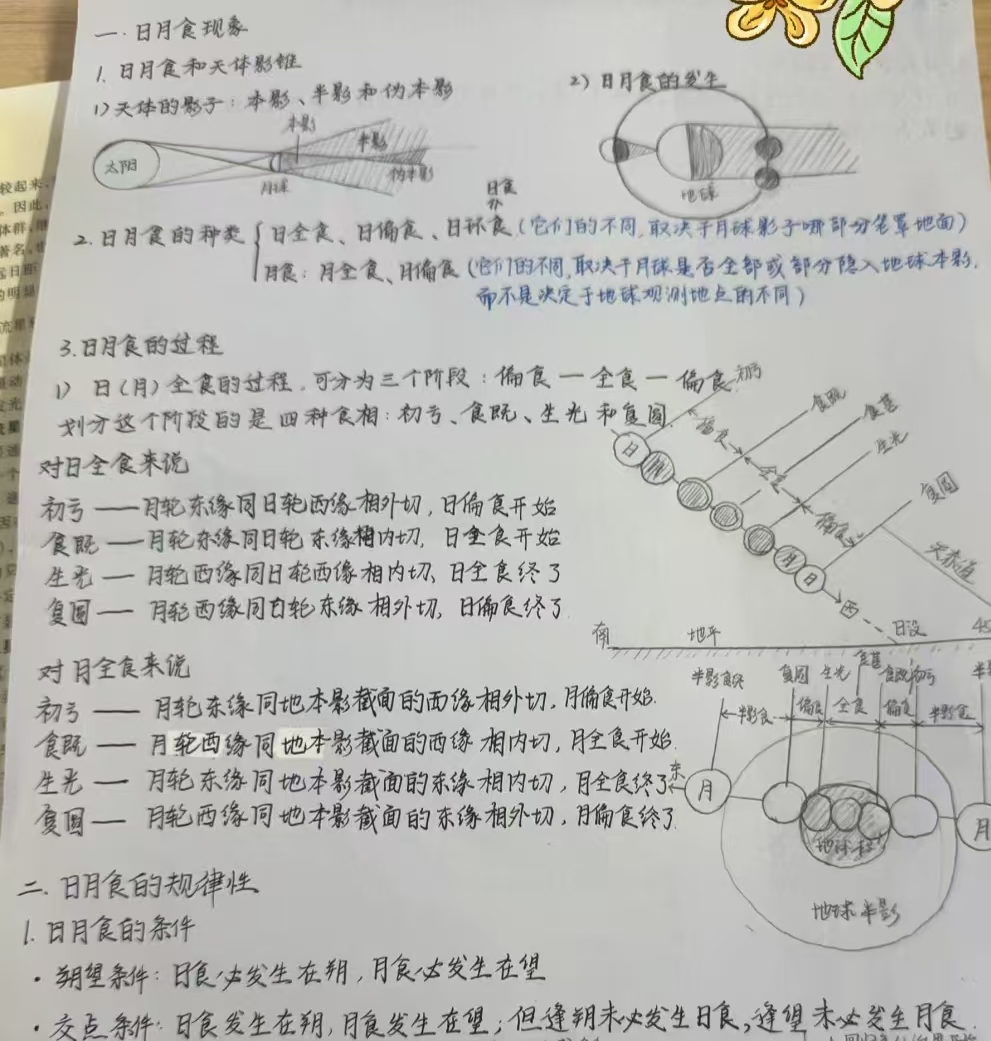 一.日月食现象
1.日月食和天体影锥
1)天体的影子:本影、半影和伪本影
太阳
月球
本影
半影
伪本影
2)日月食的发生
地球
2.日月食的种类
日食
日全食、日偏食、日环食(它们的不同,取决于月球影子哪部分笼罩地面)
月食:月全食、月偏食(它们的不同,取决于月球是否全部或部分隐入地球本影,
而不是决定于地球观测地点的不同)
3.日月食的过程
1)日(月)全食的过程,可分为三个阶段:偏食—全食—偏食
划分这个阶段的是四种食相:初亏、食既、生光和复圆.
初亏
食既
食甚
生光
复圆
偏食
全食
偏食
日
月
月
日
西
天赤道
南
地平
日没
45
对日全食来说
初亏——月轮东缘同日轮西缘相外切,日偏食开始
食既——月轮东缘同日轮东缘相内切,日全食开始
生光——月轮西缘同日轮西缘相内切,日全食终了
复圆——月轮西缘同日轮东缘相外切,日偏食终了
对月全食来说
初亏——月轮东缘同地本影截面的西缘相外切,月偏食开始.
食既——月轮西缘同地本影截面的西缘相内切,月全食开始.
生光——月轮东缘同地本影截面的东缘相内切,月全食终了
复圆——月轮西缘同地本影截面的东缘相外切,月偏食终了.
复圆
生光
食甚
食既
初亏
半影食
偏食
全食
偏食
半影食
东
月
月
地球半影
二.日月食的规律性
1.日月食的条件
·朔望条件:日食必发生在朔,月食必发生在望
·交点条件:日食发生在朔,月食发生在望;但逢朔未必发生日食,逢望未必发生月食.